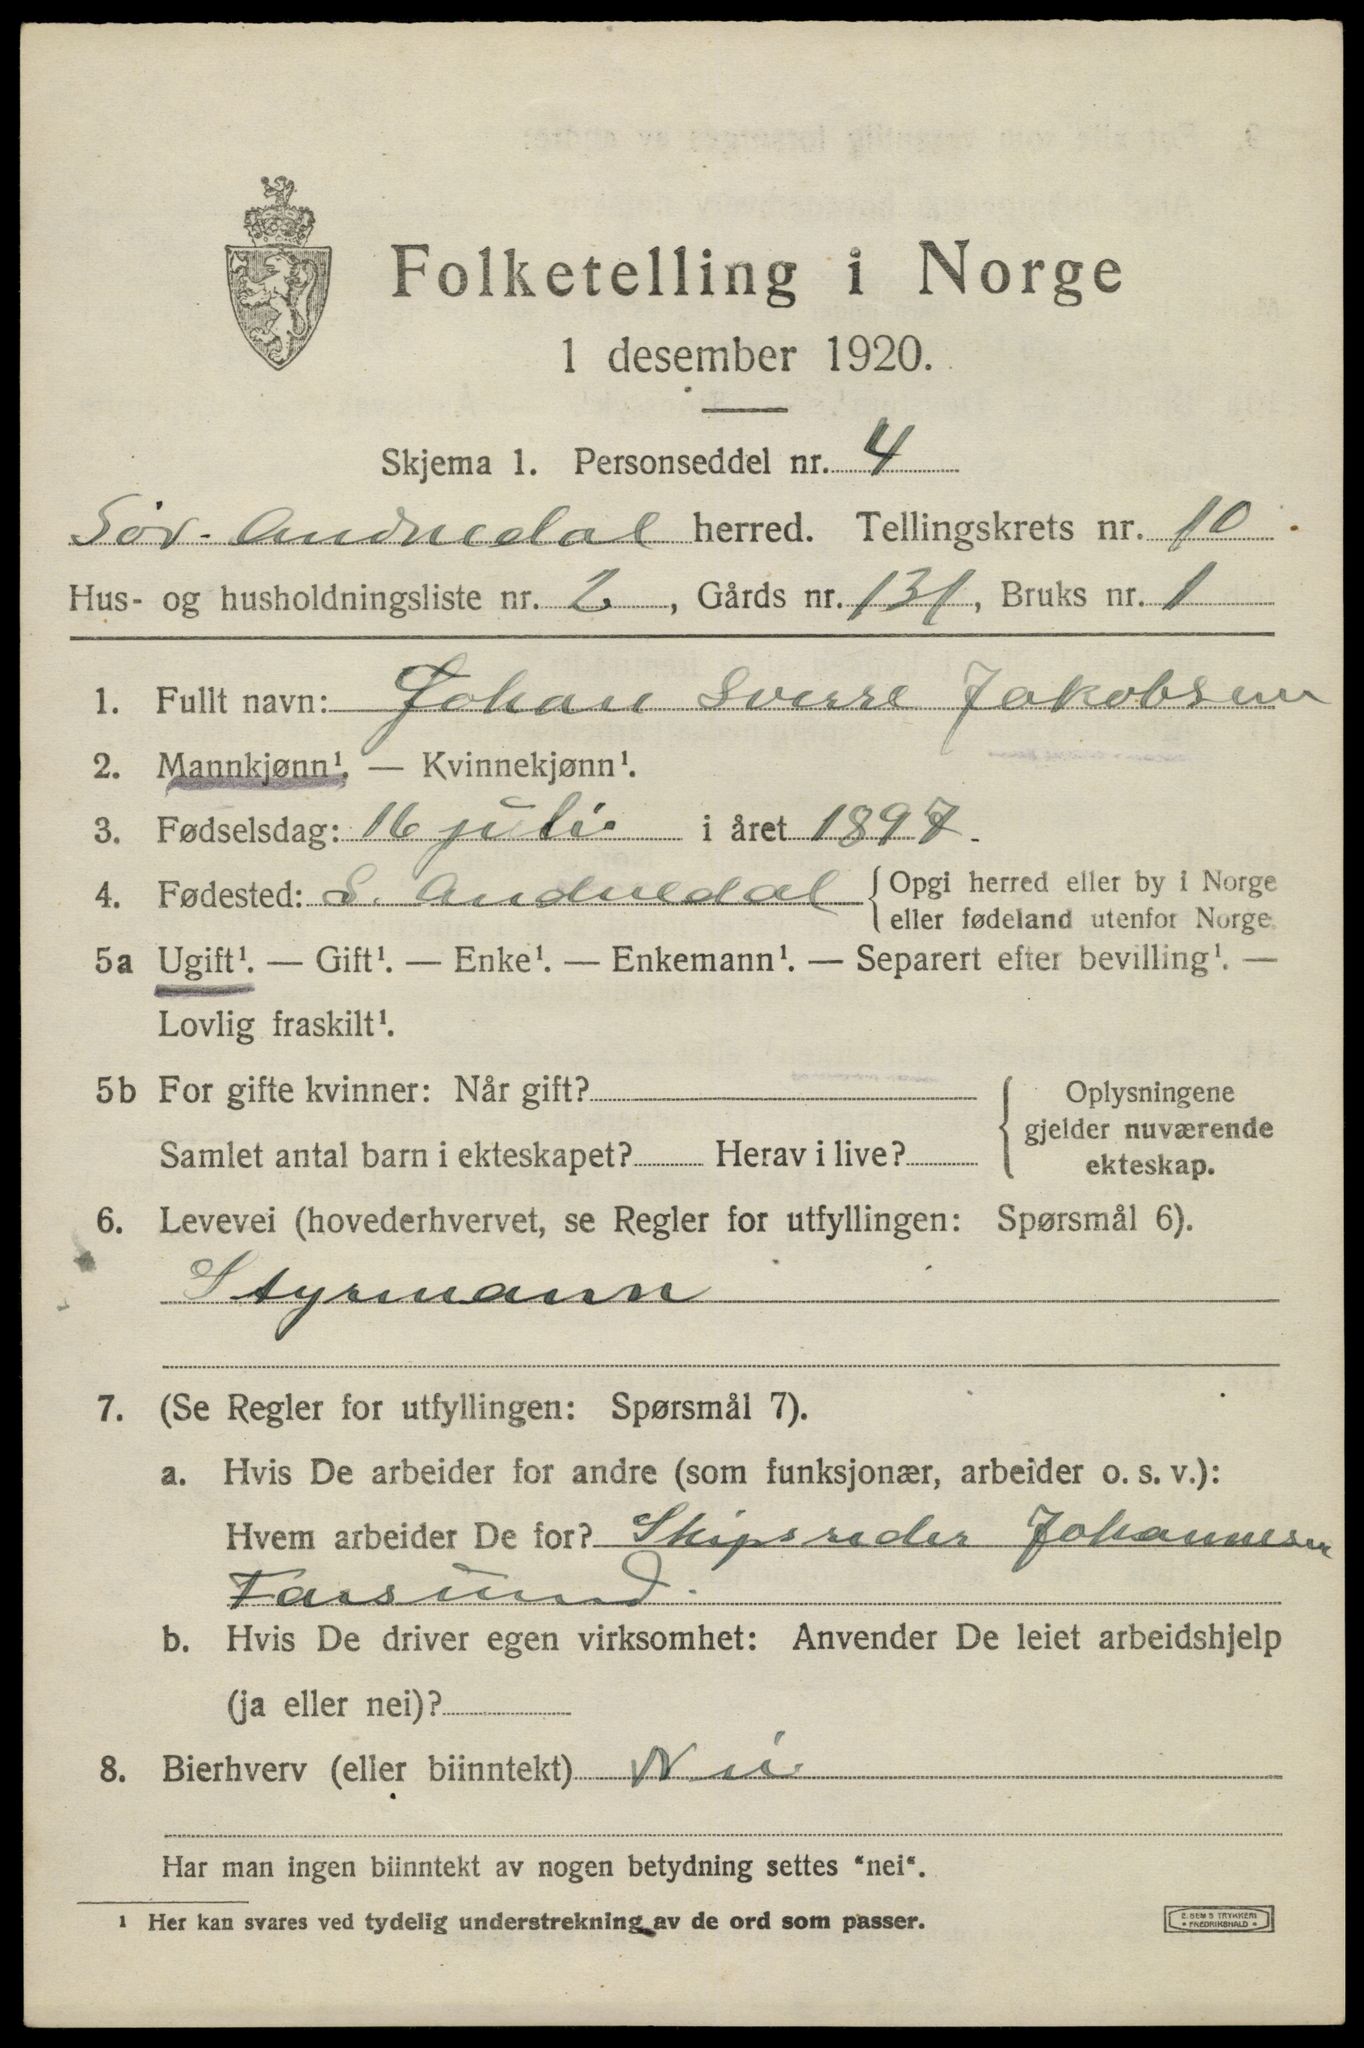 Folketelling i Norge
1 desember 1920.
Skjema 1. Personseddel nr. 4
Sør-Audnedal herred. Tellingskrets nr. 10
Hus- og husholdningsliste nr. 2, Gårds nr. 131, Bruks nr. 1
1. Fullt navn: Johan Sverre Jakobsen
2. Mannkjønn¹. — Kvinnekjønn¹.
3. Fødselsdag: 16 juli i året 1897.
4. Fødested: S. Audnedal { Opgi herred eller by i Norge
eller fødeland utenfor Norge.
5a Ugift¹. — Gift¹. — Enke¹. — Enkemann¹. — Separert efter bevilling¹. —
Lovlig fraskilt¹.
5b For gifte kvinner: Når gift?
Samlet antal barn i ekteskapet? Herav i live?
{ Oplysningene
gjelder nuværende
ekteskap.
6. Levevei (hovederhvervet, se Regler for utfyllingen: Spørsmål 6).
Styrmann
7. (Se Regler for utfyllingen: Spørsmål 7).
a. Hvis De arbeider for andre (som funksjonær, arbeider o. s. v.):
Hvem arbeider De for? Skipsreder Johannesen
Farsund.
b. Hvis De driver egen virksomhet: Anvender De leiet arbeidshjelp
(ja eller nei)?
8. Bierhverv (eller biinntekt) Nei
Har man ingen biinntekt av nogen betydning settes "nei".
¹ Her kan svares ved tydelig understrekning av de ord som passer.
E. SEM'S TRYKKERI
• FREDRIKSHALD •